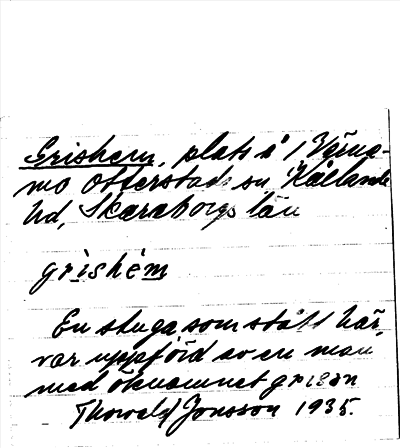 Grishem, plats å 1 Värna-
mo Otterstads sn Kållands
hd, Skaraborgs län
grìshém
En stuga som stått här,
var uppförd av en man
med öknamnet grisen
Thorvald Jonsson 1935.